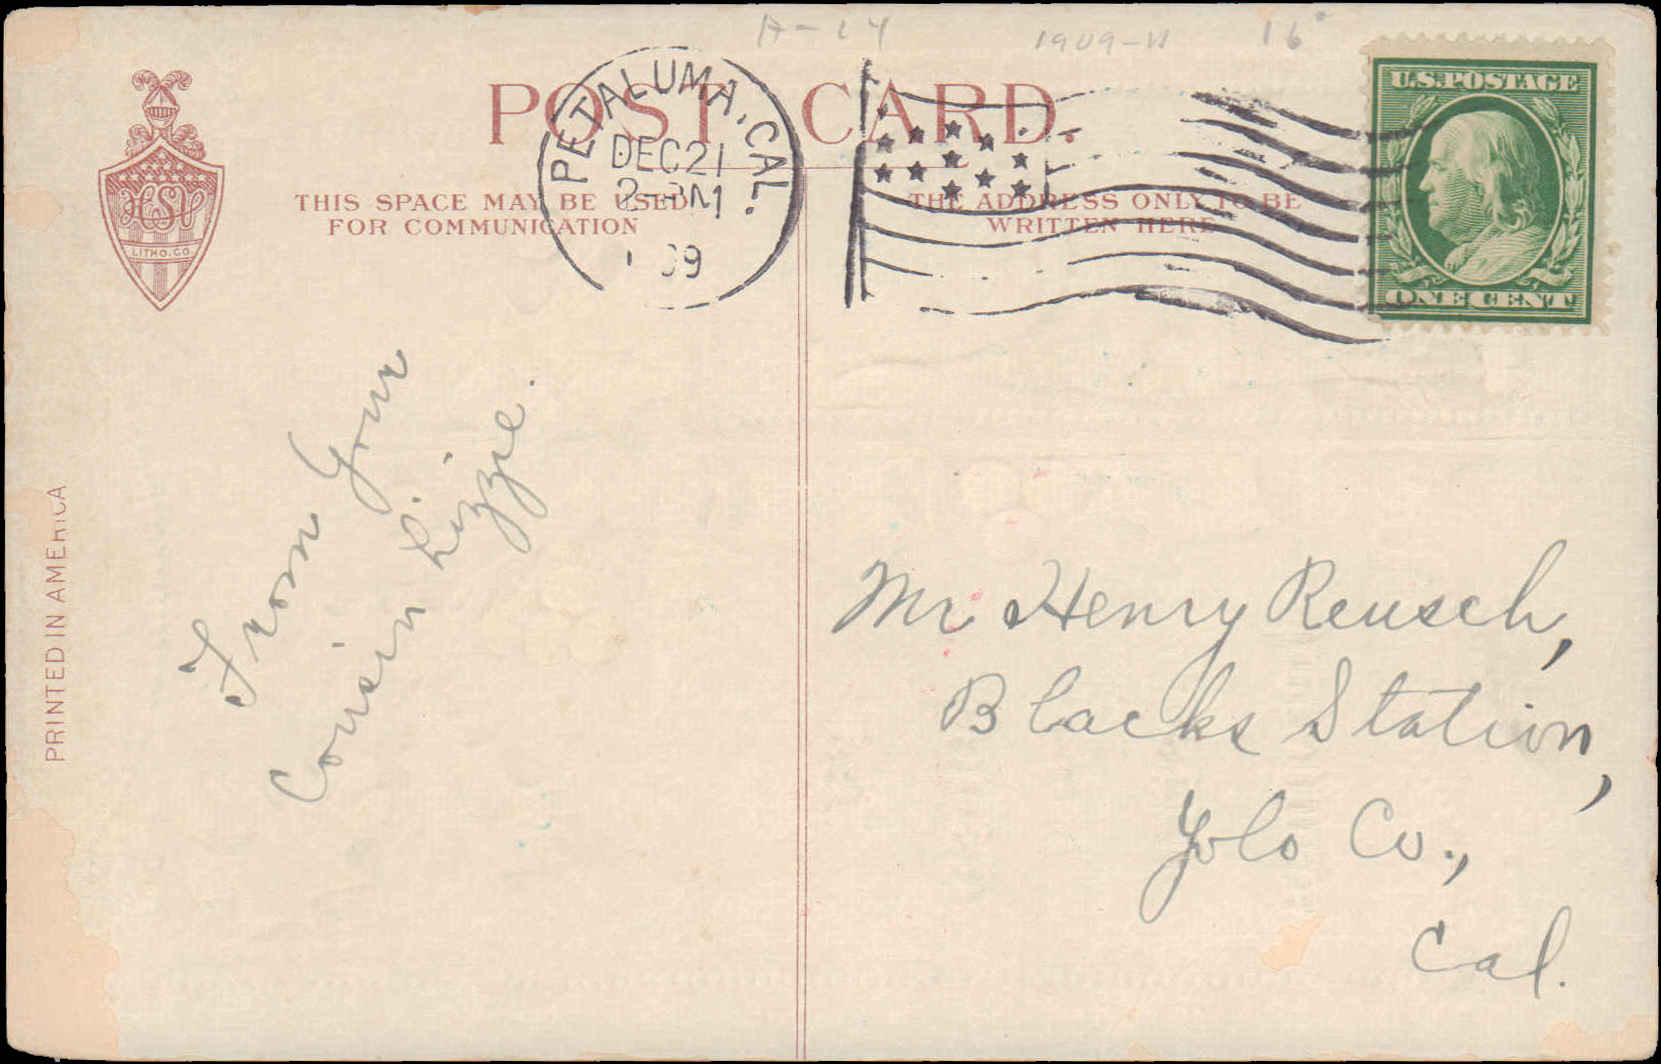 A-14
1909-11
16
POST CARD.
PETALUMA, CAL.
DEC 21
2-PM
09
U.S. POSTAGE
ONE CENT
HSV
LITHO. CO.
THIS SPACE MAY BE USED
FOR COMMUNICATION
THE ADDRESS ONLY TO BE
WRITTEN HERE
PRINTED IN AMERICA
From Your
Cousin Lizzie.
Mr Henry Reusch,
Blacks Station,
Yolo Co.,
Cal.